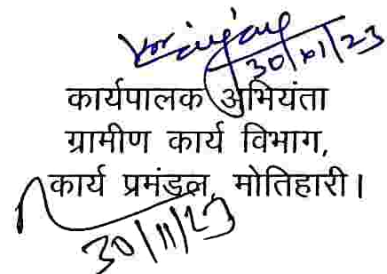 30/11/23
कार्यपालक अभियंता
ग्रामीण कार्य विभाग,
कार्य प्रमंडल, मोतिहारी।
30/11/23